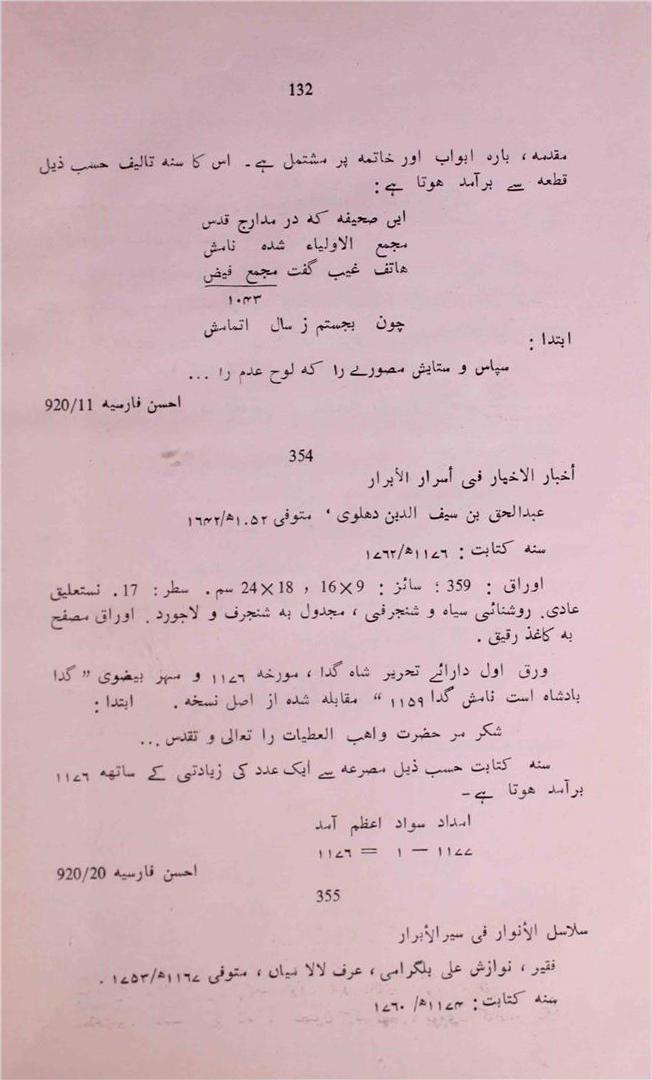 132
مقدمہ ، بارہ ابواب اور خاتمہ پر مشتمل ہے ۔ اس کا سنہ تالیف حسب ذیل
قطعہ سے برآمد ھوتا ہے :
این صحیفہ کہ در مدارج قدس
مجمع الاولیاء شدہ نامش
ھاتف غیب گفت مجمع فیض
۱۰۴۳
چون بجستم ز سال اتمامش
ابتدا :
سپاس و ستایش مصورے را کہ لوح عدم را ...
احسن فارسیہ 920/11
354
أخبار الاخیار فی أسرار الأبرار
عبدالحق بن سیف الدین دھلوی ، متوفی ۱۰۵۲ھ/۱٦۴۲
سنہ کتابت : ۱۱۷٦ھ/۱۷٦۲
اوراق : 359 ؛ سائز : 9×16 ، 18×24 سم . سطر : 17. نستعلیق
عادی. روشنائی سیاہ و شنجرفی ، مجدول بہ شنجرف و لاجورد . اوراق مصفح
بہ کاغذ رقیق .
ورق اول دارائے تحریر شاہ گدا ، مورخہ ۱۱۷٦ و مہر بیضوی ” گدا
بادشاہ است نامش گدا ۱۱۵۹ “ مقابلہ شدہ از اصل نسخہ . ابتدا :
شکر مر حضرت واھب العطیات را تعالی و تقدس ...
سنہ کتابت حسب ذیل مصرعہ سے ایک عدد کی زیادتی کے ساتھہ ۱۱۷٦
برآمد ھوتا ہے ۔
امداد سواد اعظم آمد
۱۱۷۷ – ۱ = ۱۱۷٦
احسن فارسیہ 920/20
355
سلاسل الأنوار فی سیرالأبرار
فقیر ، نوازش علی بلگرامی ، عرف لالا میاں ، متوفی ۱۱٦۷ھ/۱۷۵۳ .
سنہ کتابت : ۱۱۷۴ھ/ ۱۷٦۰